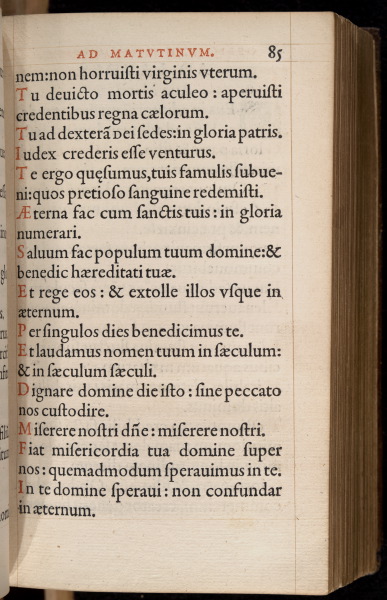 AD MATVTINVM. 85
nem:non horruiſti virginis vterum.
Tu deuicto mortis aculeo : aperuiſti
credentibus regna cælorum.
Tu ad dexterã Dei ſedes:in gloria patris.
Iudex crederis eſſe venturus.
Te ergo quęſumus,tuis famulis ſubue-
ni:quos pretioſo ſanguine redemiſti.
Æterna fac cum ſanctis tuis : in gloria
numerari.
Saluum fac populum tuum domine:&
benedic hæreditati tuæ.
Et rege eos : & extolle illos vſque in
æternum.
Per ſingulos dies benedicimus te.
Et laudamus nomen tuum in ſæculum:
& in ſæculum ſæculi.
Dignare domine die iſto : ſine peccato
nos cuſtodire.
Miſerere noſtri dñe : miſerere noſtri.
Fiat miſericordia tua domine ſuper
nos : quemadmodum ſperauimus in te.
In te domine ſperaui : non confundar
in æternum.